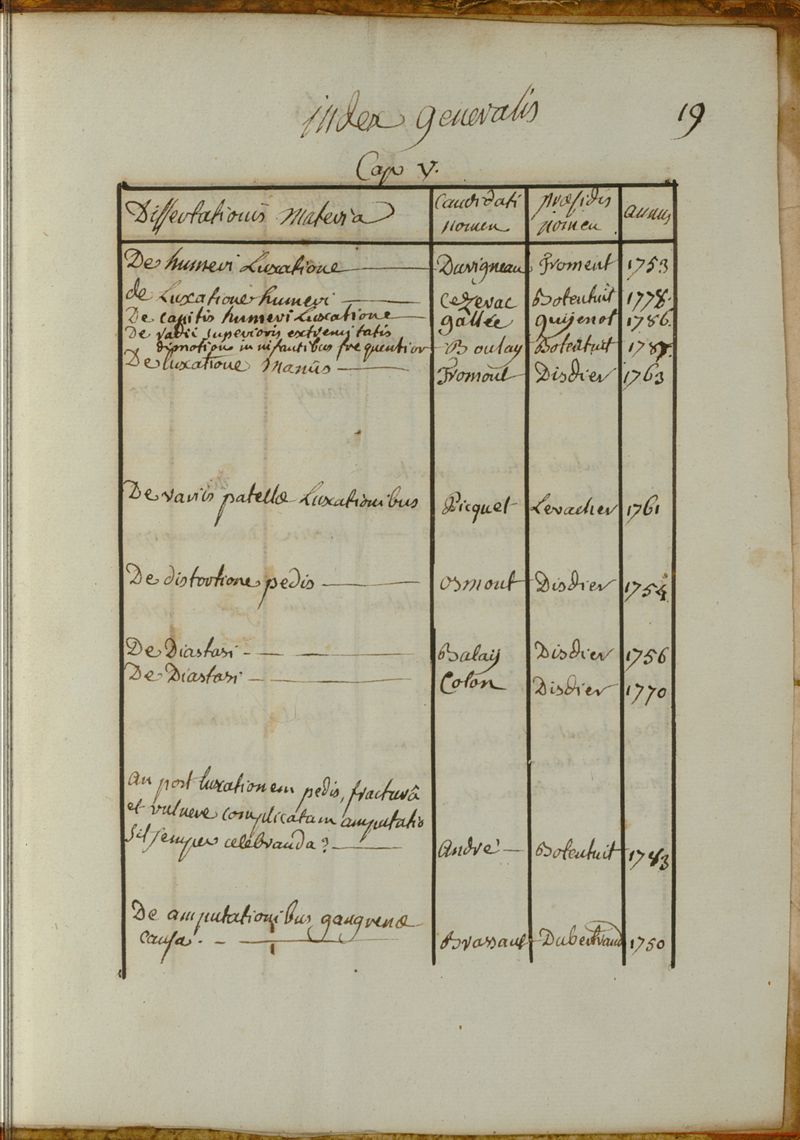 index generalis 19
Cap V.
Dissertationis materia candidati nomen præsidis nomen annus
De humeri Luxatione Duvigneau Froment 1753
de Luxatione humeri Cezerac Botentuit 1778.
De capitis humeri Luxatione gallée quijenot 1786.
De radii superioris extremitatis
dimotione in infantibus frequentior Boulay Botentuit 1787.
De luxatione manûs Fromont Disdier 1763
De variis patellæ Luxationibus Picquet Levacher 1761
De distortione pedis Osmont Disdier 1754
De Diastasi Balay Disdier 1756
De Diastasi Colon Disdier 1770
an post luxationem pedis, fracturâ
et vulnere complicatam amputatio
sit semper celebranda? André Botentuit 1783
De amputationibus gangrenæ
causa. Brassault Dubertrand 1750